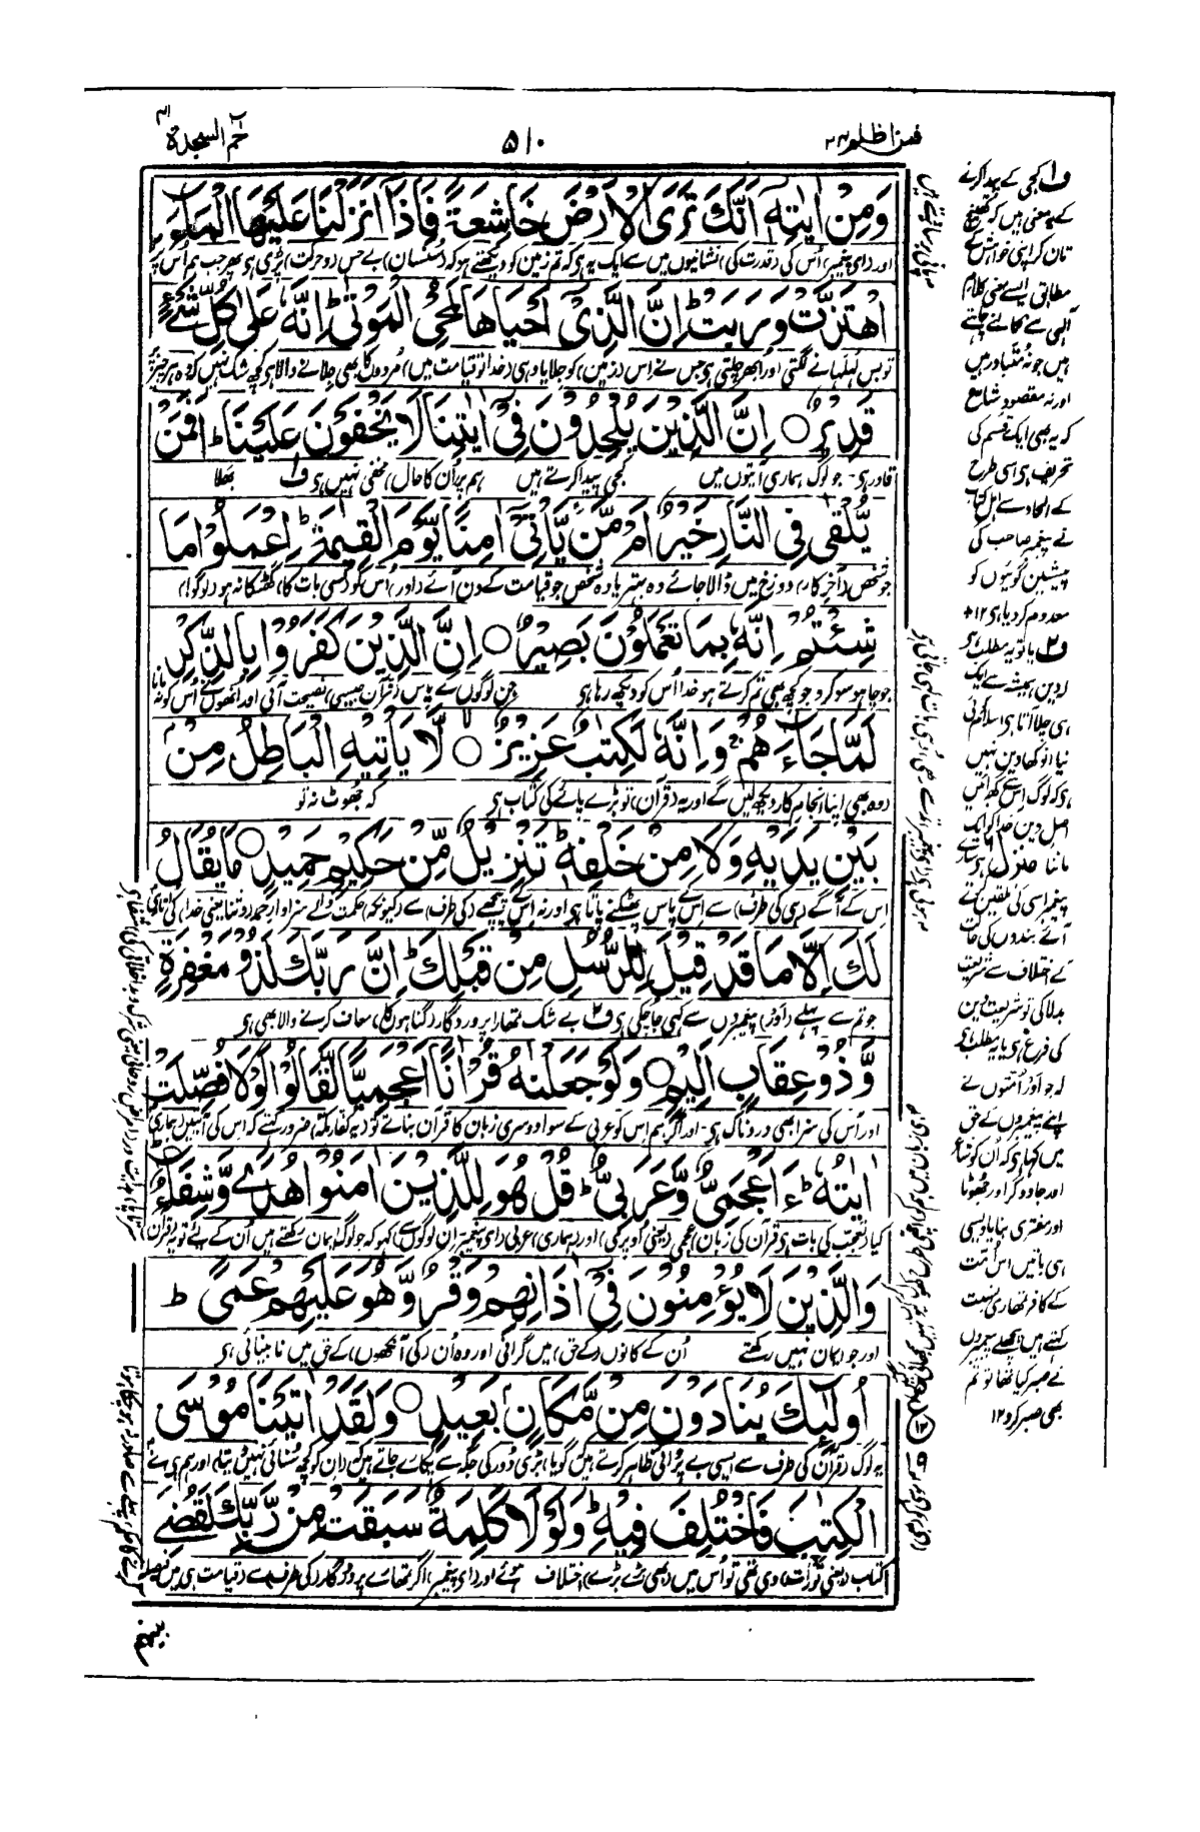 فمن اظلم ۲۴
۵۱۰
حٰم السجدة ۴۱
وَمِنْ اٰيٰتِهٖٓ اَنَّكَ تَرَى الْاَرْضَ خَاشِعَةً فَاِذَآ اَنْزَلْنَا عَلَيْهَا الْمَآءَ
اور (اے پیغمبر) اُس کی (قدرت کی) نشانیوں میں سے ایک یہ ہی کہ تم زمین کو دیکھتے ہو کہ (سُنسان) بے حس (و حرکت) پڑی ہی پھر جب ہم اُس پر
اهْتَزَّتْ وَرَبَتْ ؕ اِنَّ الَّذِيْٓ اَحْيَاهَا لَمُحْيِ الْمَوْتٰى ؕ اِنَّهٗ عَلٰى كُلِّ شَيْءٍ
تو بس لہلہانے لگتی اور اُبھر چلتی ہی جس نے (اس زمین) کو جلایا وہی (خدا تو قیامت میں) مُردوں کا بھی جِلانے والا ہی کچھ شک نہیں کہ وہ ہر چیز پر
قَدِيْرٌ ○ اِنَّ الَّذِيْنَ يُلْحِدُوْنَ فِيْٓ اٰيٰتِنَا لَا يَخْفَوْنَ عَلَيْنَا ؕ اَفَمَنْ
قادر ہی۔ جو لوگ ہماری آیتوں میں کجی پیدا کرتے ہیں ہم پر اُن کا حال مخفی نہیں ہی ف۱ بھلا
يُّلْقٰى فِي النَّارِ خَيْرٌ اَمْ مَّنْ يَّاْتِيْٓ اٰمِنًا يَّوْمَ الْقِيٰمَةِ ؕ اِعْمَلُوْا مَا
جو شخص (آخر کار) دوزخ میں ڈالا جائے وہ بہتر یا وہ شخص جو قیامت کے دن آئے (اور) اُس کو (کسی بات کا) کھٹکا نہ ہو (لوگو!)
شِئْتُمْ اِنَّهٗ بِمَا تَعْمَلُوْنَ بَصِيْرٌ ○ اِنَّ الَّذِيْنَ كَفَرُوْا بِالذِّكْرِ
جو چاہو سو کرو جو کچھ بھی تم کرتے ہو خدا اُس کو دیکھ رہا ہی جن لوگوں کے پاس (قرآن جیسی) نصیحت آئی اور اُنھوں نے اُس کو نہ مانا
لَمَّا جَآءَهُمْ ۚ وَاِنَّهٗ لَكِتٰبٌ عَزِيْزٌ ○ لَّا يَاْتِيْهِ الْبَاطِلُ مِنْۢ
(وہ بھی اپنا انجام کار دیکھ لیں گے) اور یہ (قرآن) تو بڑے پائے کی کتاب ہی کہ جھوٹ نہ تو
بَيْنِ يَدَيْهِ وَلَا مِنْ خَلْفِهٖ ؕ تَنْزِيْلٌ مِّنْ حَكِيْمٍ حَمِيْدٍ ○ مَا يُقَالُ
اِس کے آگے (ہی کی طرف) سے اِس کے پاس پھٹکنے پاتا ہی اور نہ اس کے پیچھے (کی طرف) سے (کیونکہ) حکمت والے سزاوار حمد (و ثنا یعنی خدا) کی
لَكَ اِلَّا مَا قَدْ قِيْلَ لِلرُّسُلِ مِنْ قَبْلِكَ ؕ اِنَّ رَبَّكَ لَذُوْ مَغْفِرَةٍ
جو تم سے پہلے (اَور) پیغمبروں سے کہی جا چکی ہی ف۲ بے شک تمھارا پروردگار (گناہوں کا) معاف کرنے والا بھی ہی
وَّذُوْ عِقَابٍ اَلِيْمٍ ○ وَلَوْ جَعَلْنٰهُ قُرْاٰنًا اَعْجَمِيًّا لَّقَالُوْا لَوْلَا فُصِّلَتْ
اور اُس کی سزا بھی دردناک ہی۔ اور اگر ہم اِس کو عربی کے سوا دوسری زبان کا قرآن بناتے تو (یہ کفار مکہ) ضرور کہتے کہ اس کی آیتیں ہماری
اٰيٰتُهٗ ؕ ءَاَعْجَمِيٌّ وَّعَرَبِيٌّ ؕ قُلْ هُوَ لِلَّذِيْنَ اٰمَنُوْا هُدًى وَّشِفَآءٌ ؕ
کیا (تعجب کی بات ہی قرآن کی زبان) عجمی (یعنی اوپری) اور (ہماری) عربی (اے پیغمبر اِن لوگوں سے) کہو کہ جو لوگ ایمان رکھتے ہیں اُن کے لئے تو یہ (قرآن)
وَالَّذِيْنَ لَا يُؤْمِنُوْنَ فِيْٓ اٰذَانِهِمْ وَقْرٌ وَّهُوَ عَلَيْهِمْ عَمًى ؕ
اور جو ایمان نہیں رکھتے اُن کے کانوں (کے حق) میں گرانی اور وہ اُن (کی آنکھوں) کے حق میں نابینائی ہی
اُولٰٓئِكَ يُنَادَوْنَ مِنْ مَّكَانٍۢ بَعِيْدٍ ○ وَلَقَدْ اٰتَيْنَا مُوْسَى
یہ لوگ (قرآن کی طرف سے ایسی بے پروائی ظاہر کرتے ہیں گویا) بڑی دُور کی جگہ سے پکارے جاتے ہیں (ان کو کچھ سُنائی نہیں دیتا) اور ہم ہی نے
الْكِتٰبَ فَاخْتُلِفَ فِيْهِ ؕ وَلَوْلَا كَلِمَةٌ سَبَقَتْ مِنْ رَّبِّكَ لَقُضِيَ
کتاب (یعنی تورات) دی تھی تو اُس میں (بھی بڑے بڑے) اختلاف ہوئے اور (اے پیغمبر) اگر تمھارے پروردگار کی طرف سے
بينهم
ف۱ کجی کے پیدا کرنے
کے یہ معنی ہیں کہ کھینچ
تان کر اپنی خواہش کے
مطابق ایسے معنی کلام
الٰہی سے نکالنے چاہتے
ہیں جو نہ متبادر ہیں
اور نہ مقصود شارع
کہ یہ بھی ایک قسم کی
تحریف ہی اسی طرح
کے الحاد سے اہل کتاب
نے پیغمبر صاحب کی
پیشین گوئیوں کو
معدوم کر دیا ہی ۱۲
ف۲ یا تو یہ مطلب ہی
کہ دین ہمیشہ سے ایک
ہی چلا آتا ہی اسلام کوئی
نیا انوکھا دین نہیں
ہی کہ لوگ اس سے گھبرائیں
اصل دین خدا کو ایک
ماننا
پیغمبر اسی کی تلقین کرتے
آئے بندوں کی حالت
کے اختلاف سے شریعت
بدلا کی تو شریعت دین
کی فرع ہی یا یہ مطلب ہی
کہ جو اَور اُمتوں نے
اپنے پیغمبروں کے حق
میں کہا ہی کہ اُن کو شاعر
اور جادوگر اور جھوٹا
اور مفتری بنایا ویسی
ہی باتیں اس وقت
کے کافر تمھاری نسبت
کہتے ہیں پچھلے پیغمبروں
نے صبر کیا تھا تو تم
بھی صبر کرو ۱۲